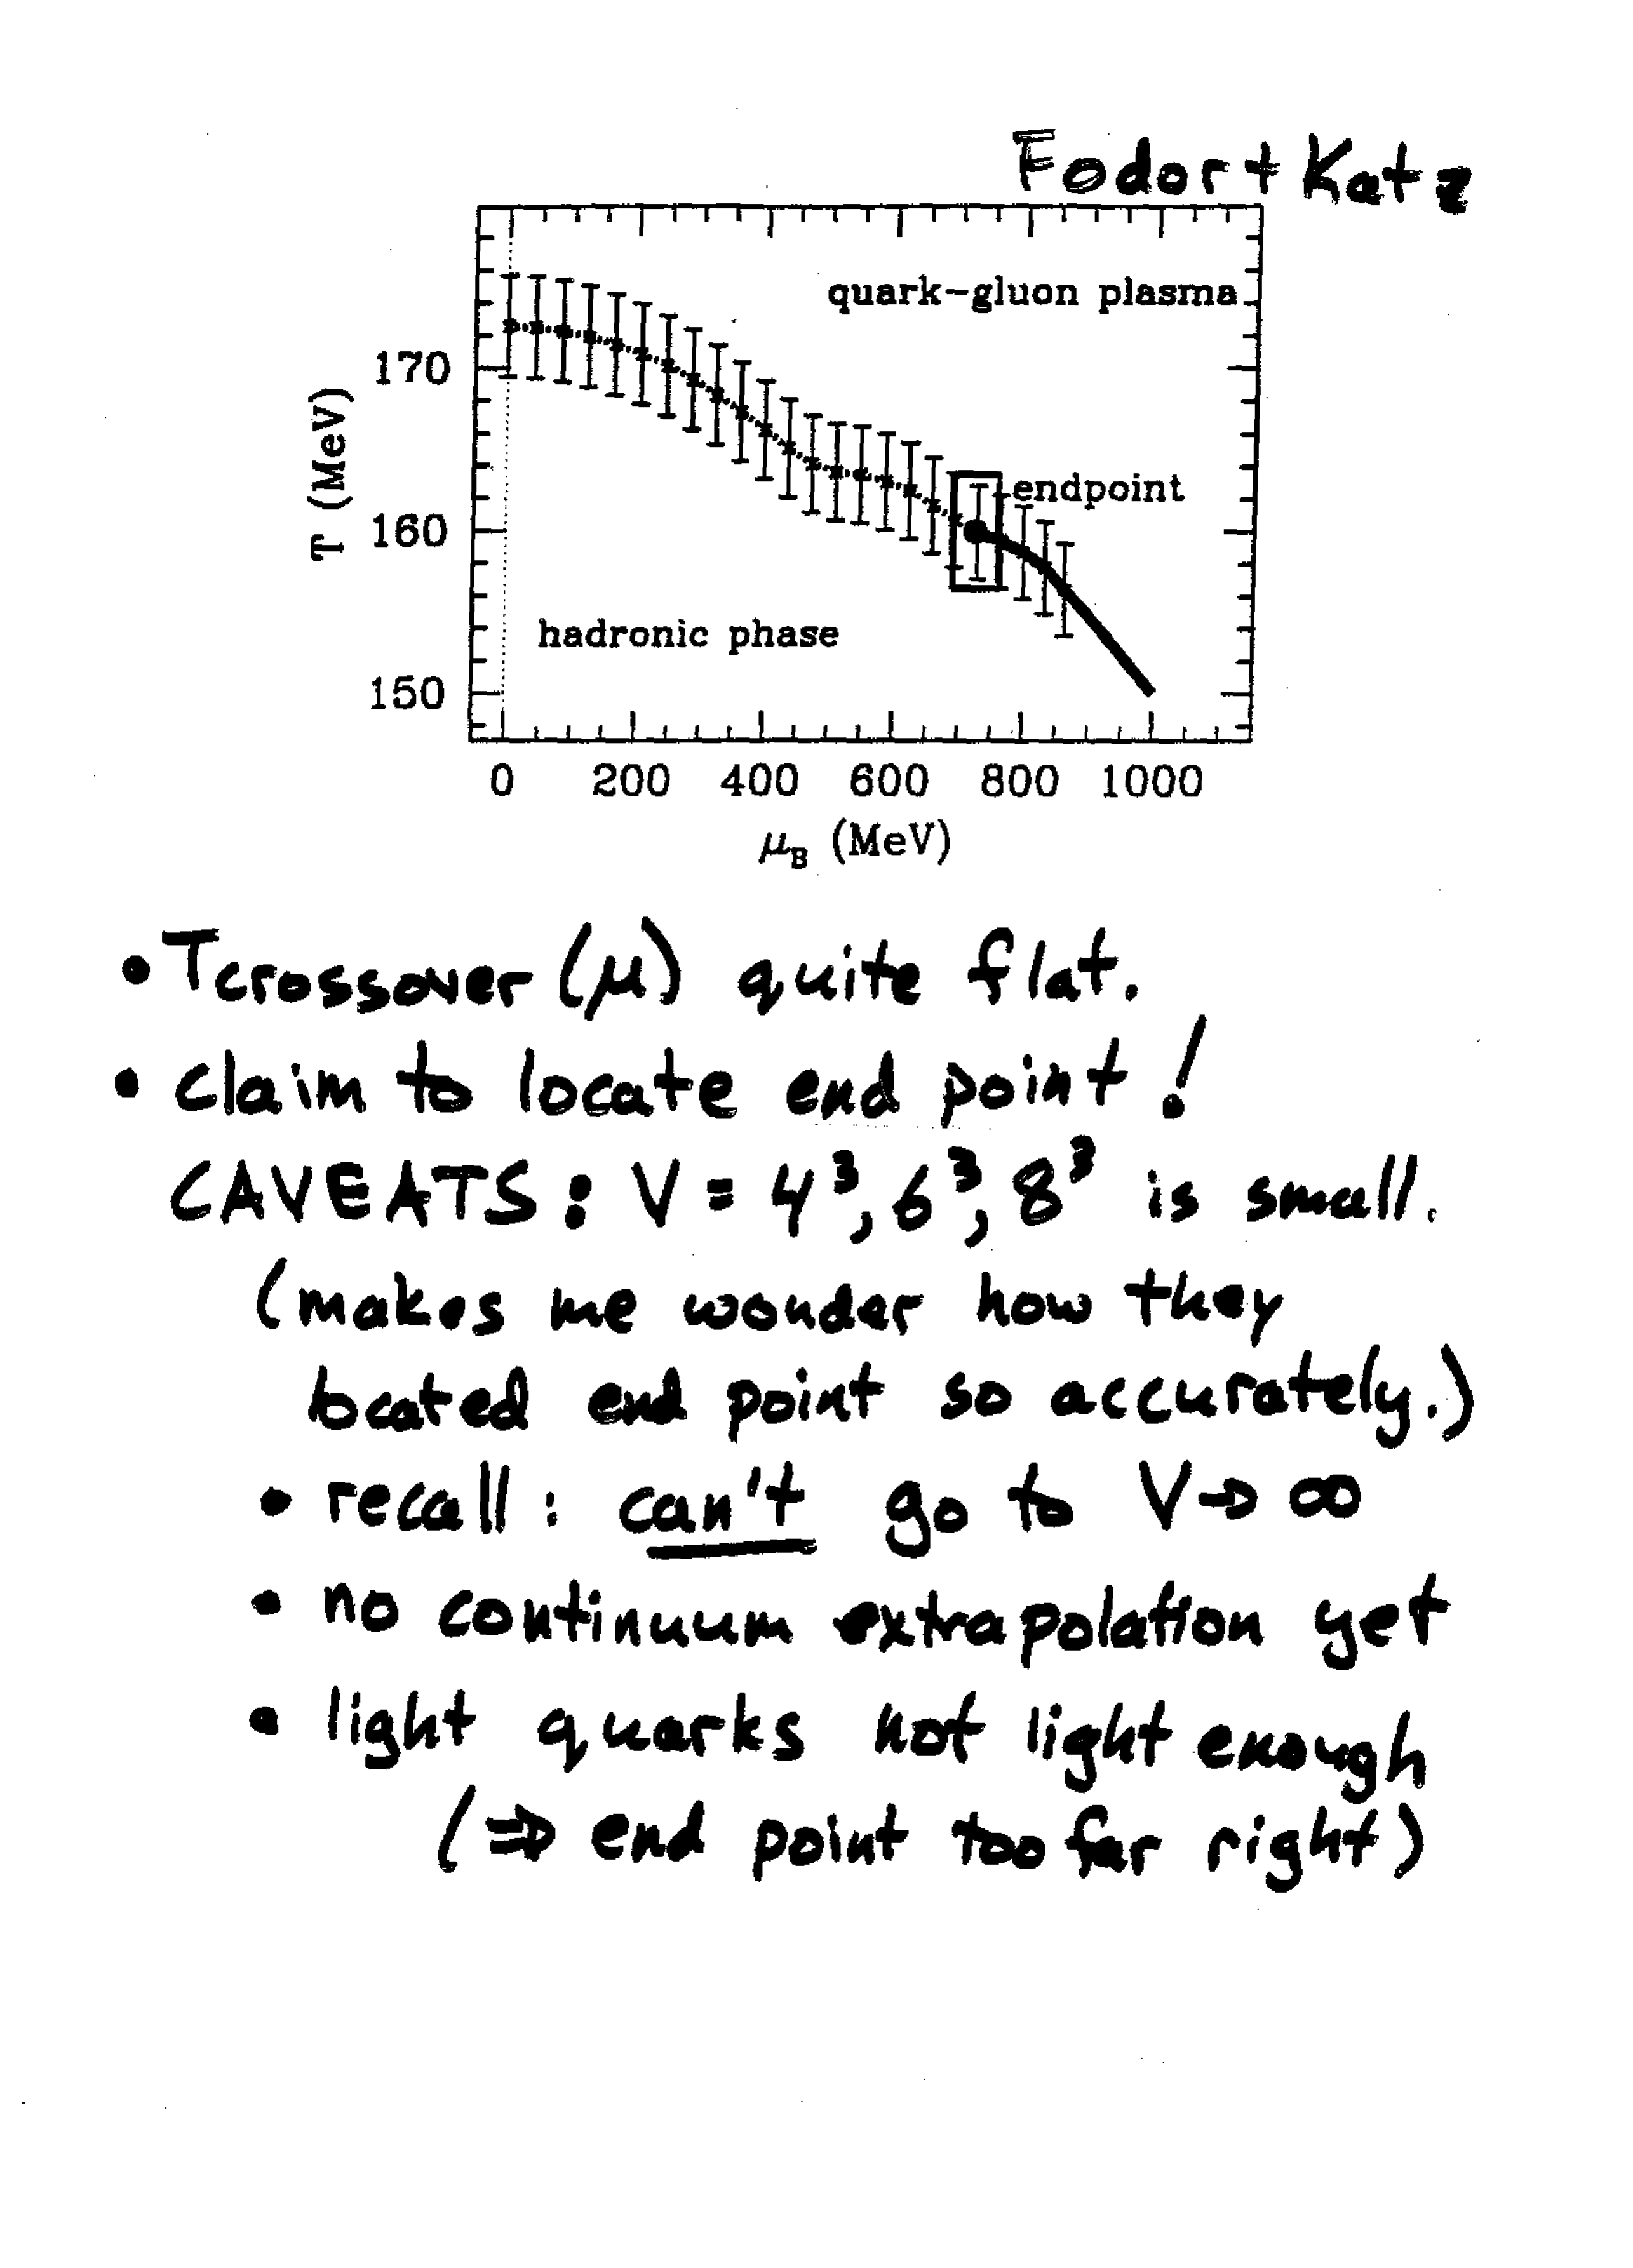 Fodor + Katz
quark-gluon plasma
170
T (MeV)
endpoint
160
hadronic phase
150
0 200 400 600 800 1000
μB (MeV)
• Tcrossover (μ) quite flat.
• claim to locate end point!
CAVEATS: V = 4³, 6³, 8³ is small.
(makes me wonder how they
located end point so accurately.)
• recall: can't go to V→∞
• no continuum extrapolation yet
• light quarks not light enough
(⇒ end point too far right)